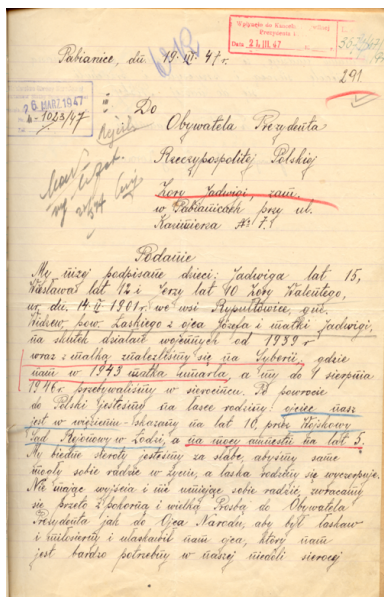 Wpłynęło do Kancel. Cywilnej
Prezydenta
Data 21.III.47
Pabianice, dn. 19.III.47r.
291
26. MARZ. 1947
b-1023/47
Do
Obywatela Prezydenta
Rzeczypospolitej Polskiej
Zory Jadwigi, zam.
w Pabianicach przy ul.
Kazimierza № 7.
Podanie
My niżej podpisane dzieci: Jadwiga lat 15,
Wiesława lat 12 i Jerzy lat 10 Zory Walentego,
ur. dn. 14.II 1901r. we wsi Rypułtowice, gm.
Widzew, pow. Łaskiego z ojca Józefa i matki Jadwigi,
na skutek działań wojennych od 1939 r
wraz z matką znaleźliśmy się na Syberii; gdzie
nam w 1943 matka umarła, a my do 4 sierpnia
1946r. przebywaliśmy w sierocińcu. Po powrocie
do Polski jesteśmy na łasce rodziny: ojciec nasz
jest w więzieniu skazany na lat 10, przez Wojskowy
Sąd Rejonowy w Łodzi, a na mocy amnestii na lat 5.
My biedne sieroty jesteśmy za słabe, abyśmy same
mogły sobie radzić w życiu, a łaska rodziny się wyczerpuje.
Nie mając wyjścia i nie umiejąc sobie radzić, zwracamy
się przeto z pokorną i wielką Prośbą do Obywatela
Prezydenta jak do Ojca Narodu, aby był łaskaw
i miłosierny i ułaskawił nam ojca, który nam
jest bardzo potrzebny w naszej niedoli sierocej